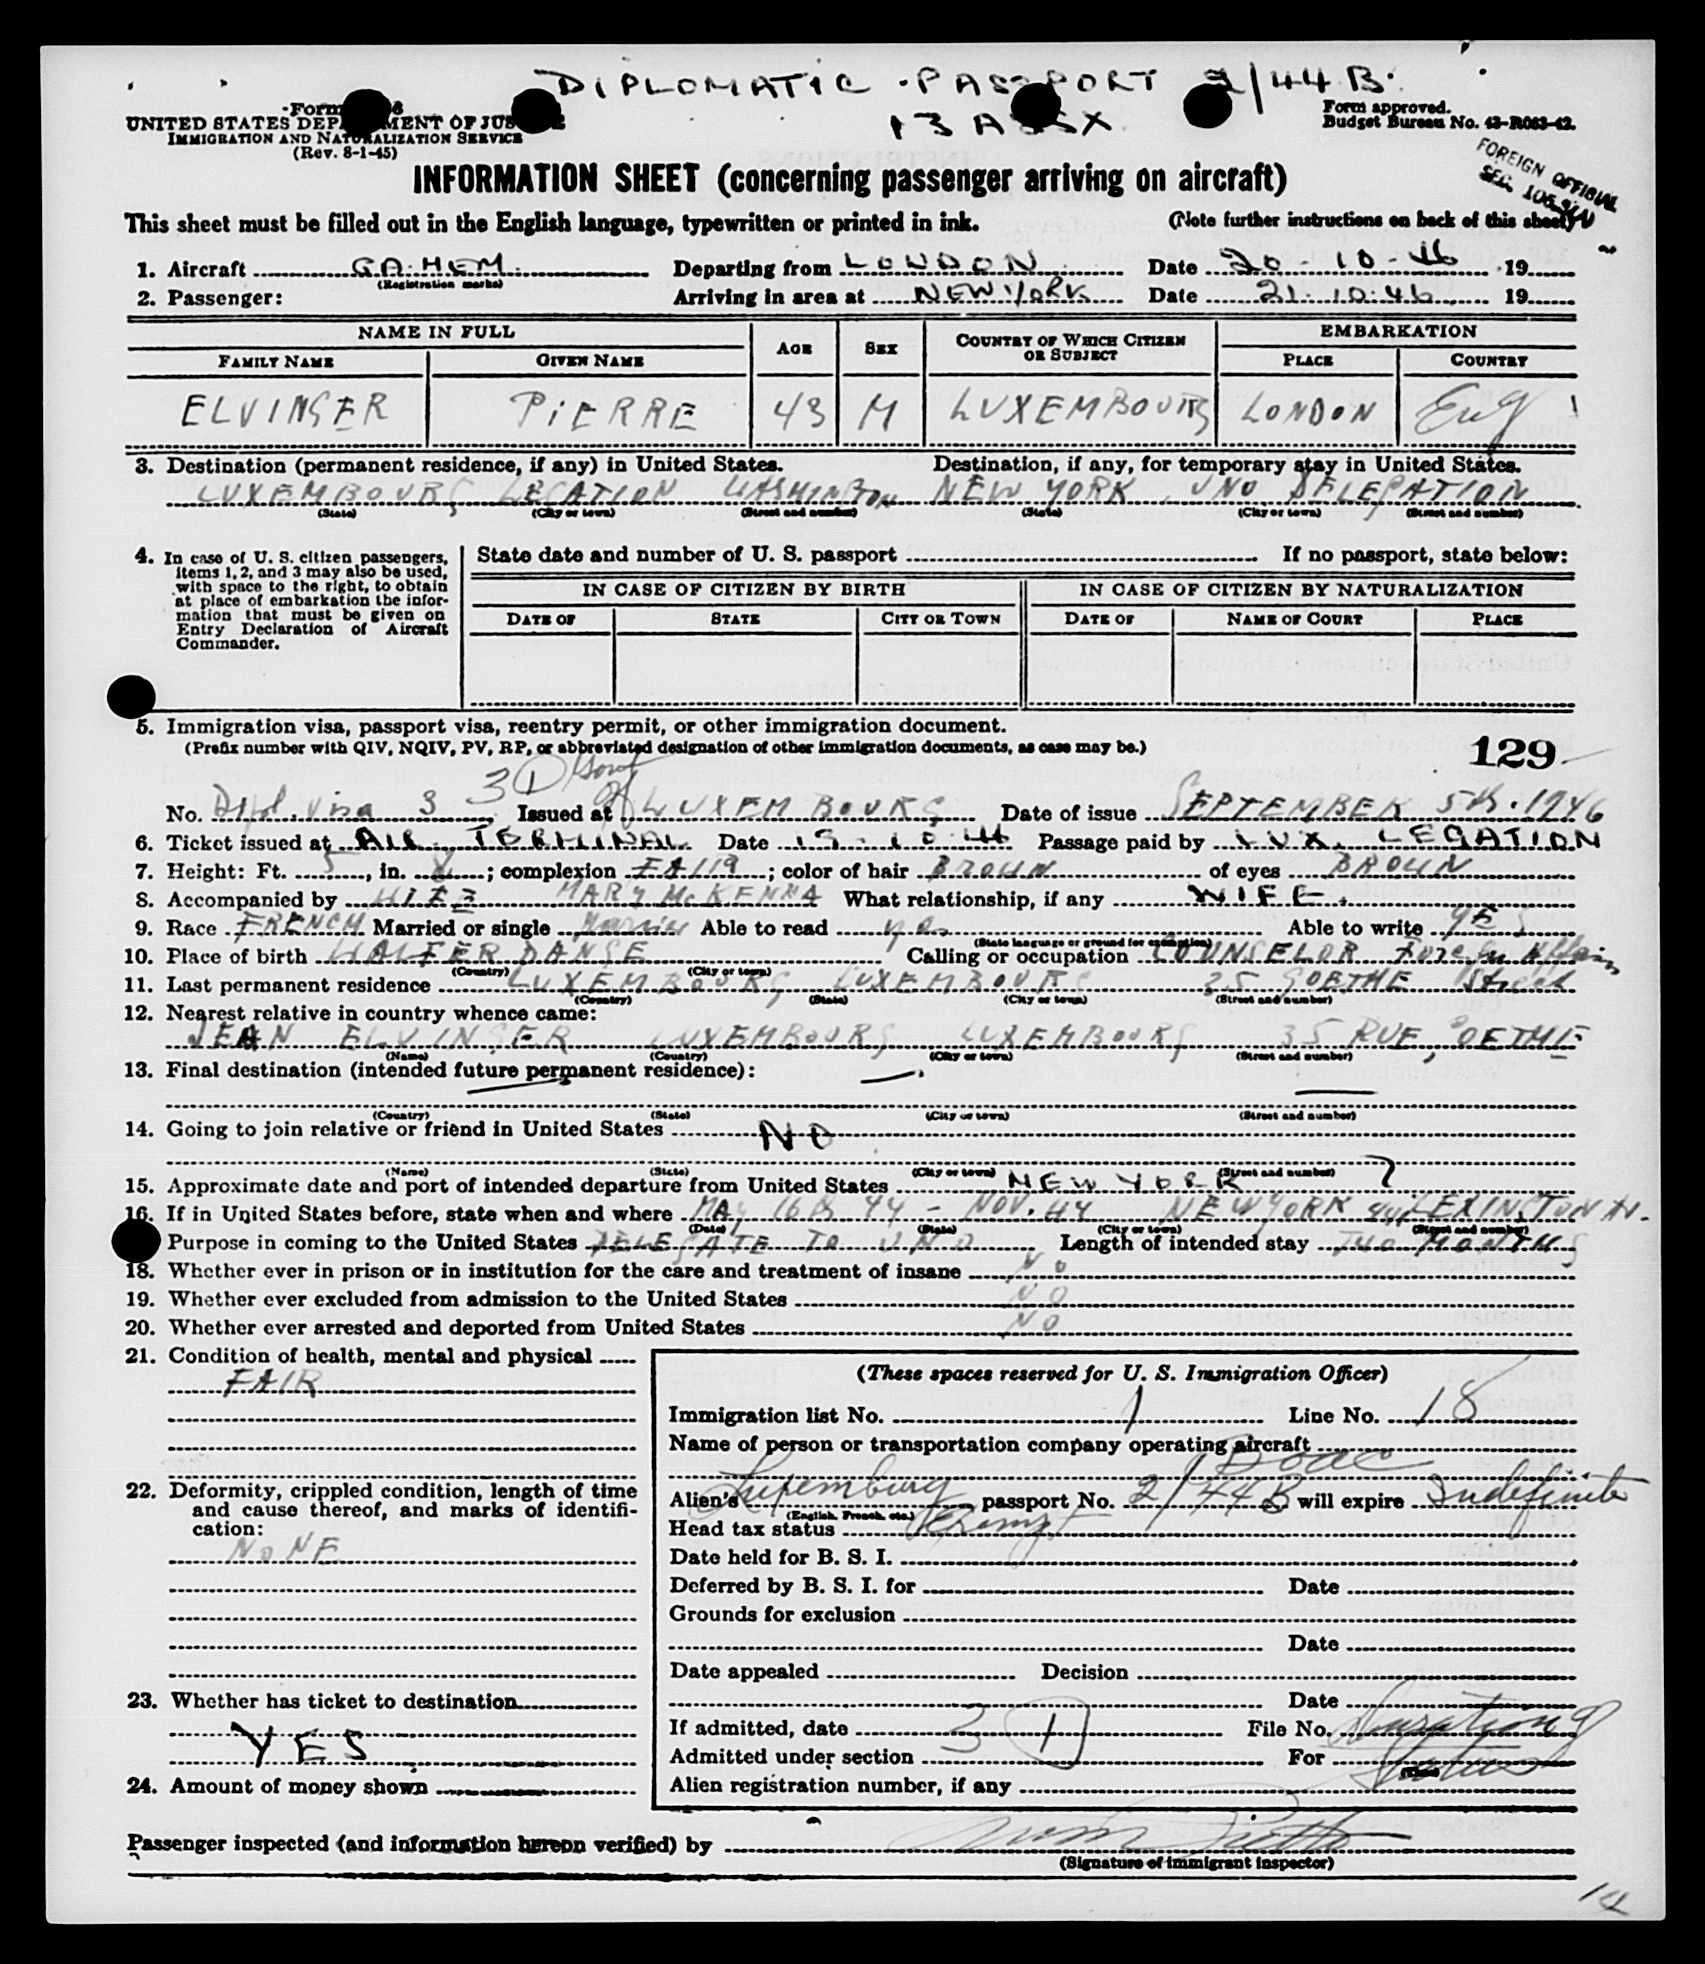 DIPLOMATIC PASSPORT 2/44B.
Form
UNITED STATES DEPARTMENT OF JUSTICE
IMMIGRATION AND NATURALIZATION SERVICE
(Rev. 8-1-45)
Form approved.
Budget Bureau No. 43-R083-42.
FOREIGN OFFICIAL
SEC.
INFORMATION SHEET (concerning passenger arriving on aircraft)
This sheet must be filled out in the English language, typewritten or printed in ink. (Note further instructions on back of this sheet)
1. Aircraft G.A.HEM. Departing from LONDON Date 20-10-46 19
(Registration marks)
2. Passenger: Arriving in area at NEW YORK Date 21.10.46 19
NAME IN FULL AGE SEX COUNTRY OF WHICH CITIZEN OR SUBJECT EMBARKATION
FAMILY NAME GIVEN NAME PLACE COUNTRY
ELVINGER PIERRE 43 M LUXEMBOURG LONDON Eng
3. Destination (permanent residence, if any) in United States. Destination, if any, for temporary stay in United States.
LUXEMBOURG LEGATION WASHINGTON NEW YORK UNO DELEGATION
(State) (City or town) (Street and number) (State) (City or town) (Street and number)
4. In case of U. S. citizen passengers, items 1, 2, and 3 may also be used, with space to the right, to obtain at place of embarkation the information that must be given on Entry Declaration of Aircraft Commander.
State date and number of U. S. passport If no passport, state below:
IN CASE OF CITIZEN BY BIRTH IN CASE OF CITIZEN BY NATURALIZATION
DATE OF STATE CITY OR TOWN DATE OF NAME OF COURT PLACE
5. Immigration visa, passport visa, reentry permit, or other immigration document.
(Prefix number with QIV, NQIV, PV, RP, or abbreviated designation of other immigration documents, as case may be.) 129
3 (1)
No. Dipl. visa 3 Issued at LUXEMBOURG Date of issue SEPTEMBER 5th. 1946
6. Ticket issued at AIR TERMINAL Date 19.10.46 Passage paid by LUX. LEGATION
7. Height: Ft. 5, in. 8; complexion FAIR; color of hair BROWN of eyes BROWN
8. Accompanied by WIFE MARY McKENNA What relationship, if any WIFE.
9. Race FRENCH Married or single Married Able to read yes Able to write YES
(State language or ground for exemption)
10. Place of birth WALFERDANGE Calling or occupation COUNSELOR Foreign Affairs
(Country) (City or town)
11. Last permanent residence LUXEMBOURG LUXEMBOURG 35 GOETHE Street
(Country) (State) (City or town) (Street and number)
12. Nearest relative in country whence came:
JEAN ELVINGER LUXEMBOURG LUXEMBOURG 35 RUE GOETHE
(Name) (Country) (City or town) (Street and number)
13. Final destination (intended future permanent residence):
(Country) (State) (City or town) (Street and number)
14. Going to join relative or friend in United States NO
(Name) (State) (City or town) (Street and number)
15. Approximate date and port of intended departure from United States NEW YORK ?
16. If in United States before, state when and where MAY 16th 44 - NOV. 44 NEW YORK LEXINGTON Av.
(Date) (State) (City or town) (Street and number)
Purpose in coming to the United States DELEGATE TO UNO Length of intended stay TWO MONTHS
18. Whether ever in prison or in institution for the care and treatment of insane NO
19. Whether ever excluded from admission to the United States NO
20. Whether ever arrested and deported from United States NO
21. Condition of health, mental and physical
FAIR
22. Deformity, crippled condition, length of time and cause thereof, and marks of identification:
NONE
23. Whether has ticket to destination
YES
24. Amount of money shown
(These spaces reserved for U. S. Immigration Officer)
Immigration list No. 1 Line No. 18
Name of person or transportation company operating aircraft
Boac
Alien's Luxemburg passport No. 2/44B will expire Indefinite
(English, French, etc.)
Head tax status Exempt
Date held for B. S. I.
Deferred by B. S. I. for Date
Grounds for exclusion
Date
Date appealed Decision
Date
If admitted, date File No. Duration of
Admitted under section 3 (1) For Status
(Time)
Alien registration number, if any
Passenger inspected (and information hereon verified) by
(Signature of immigrant inspector)